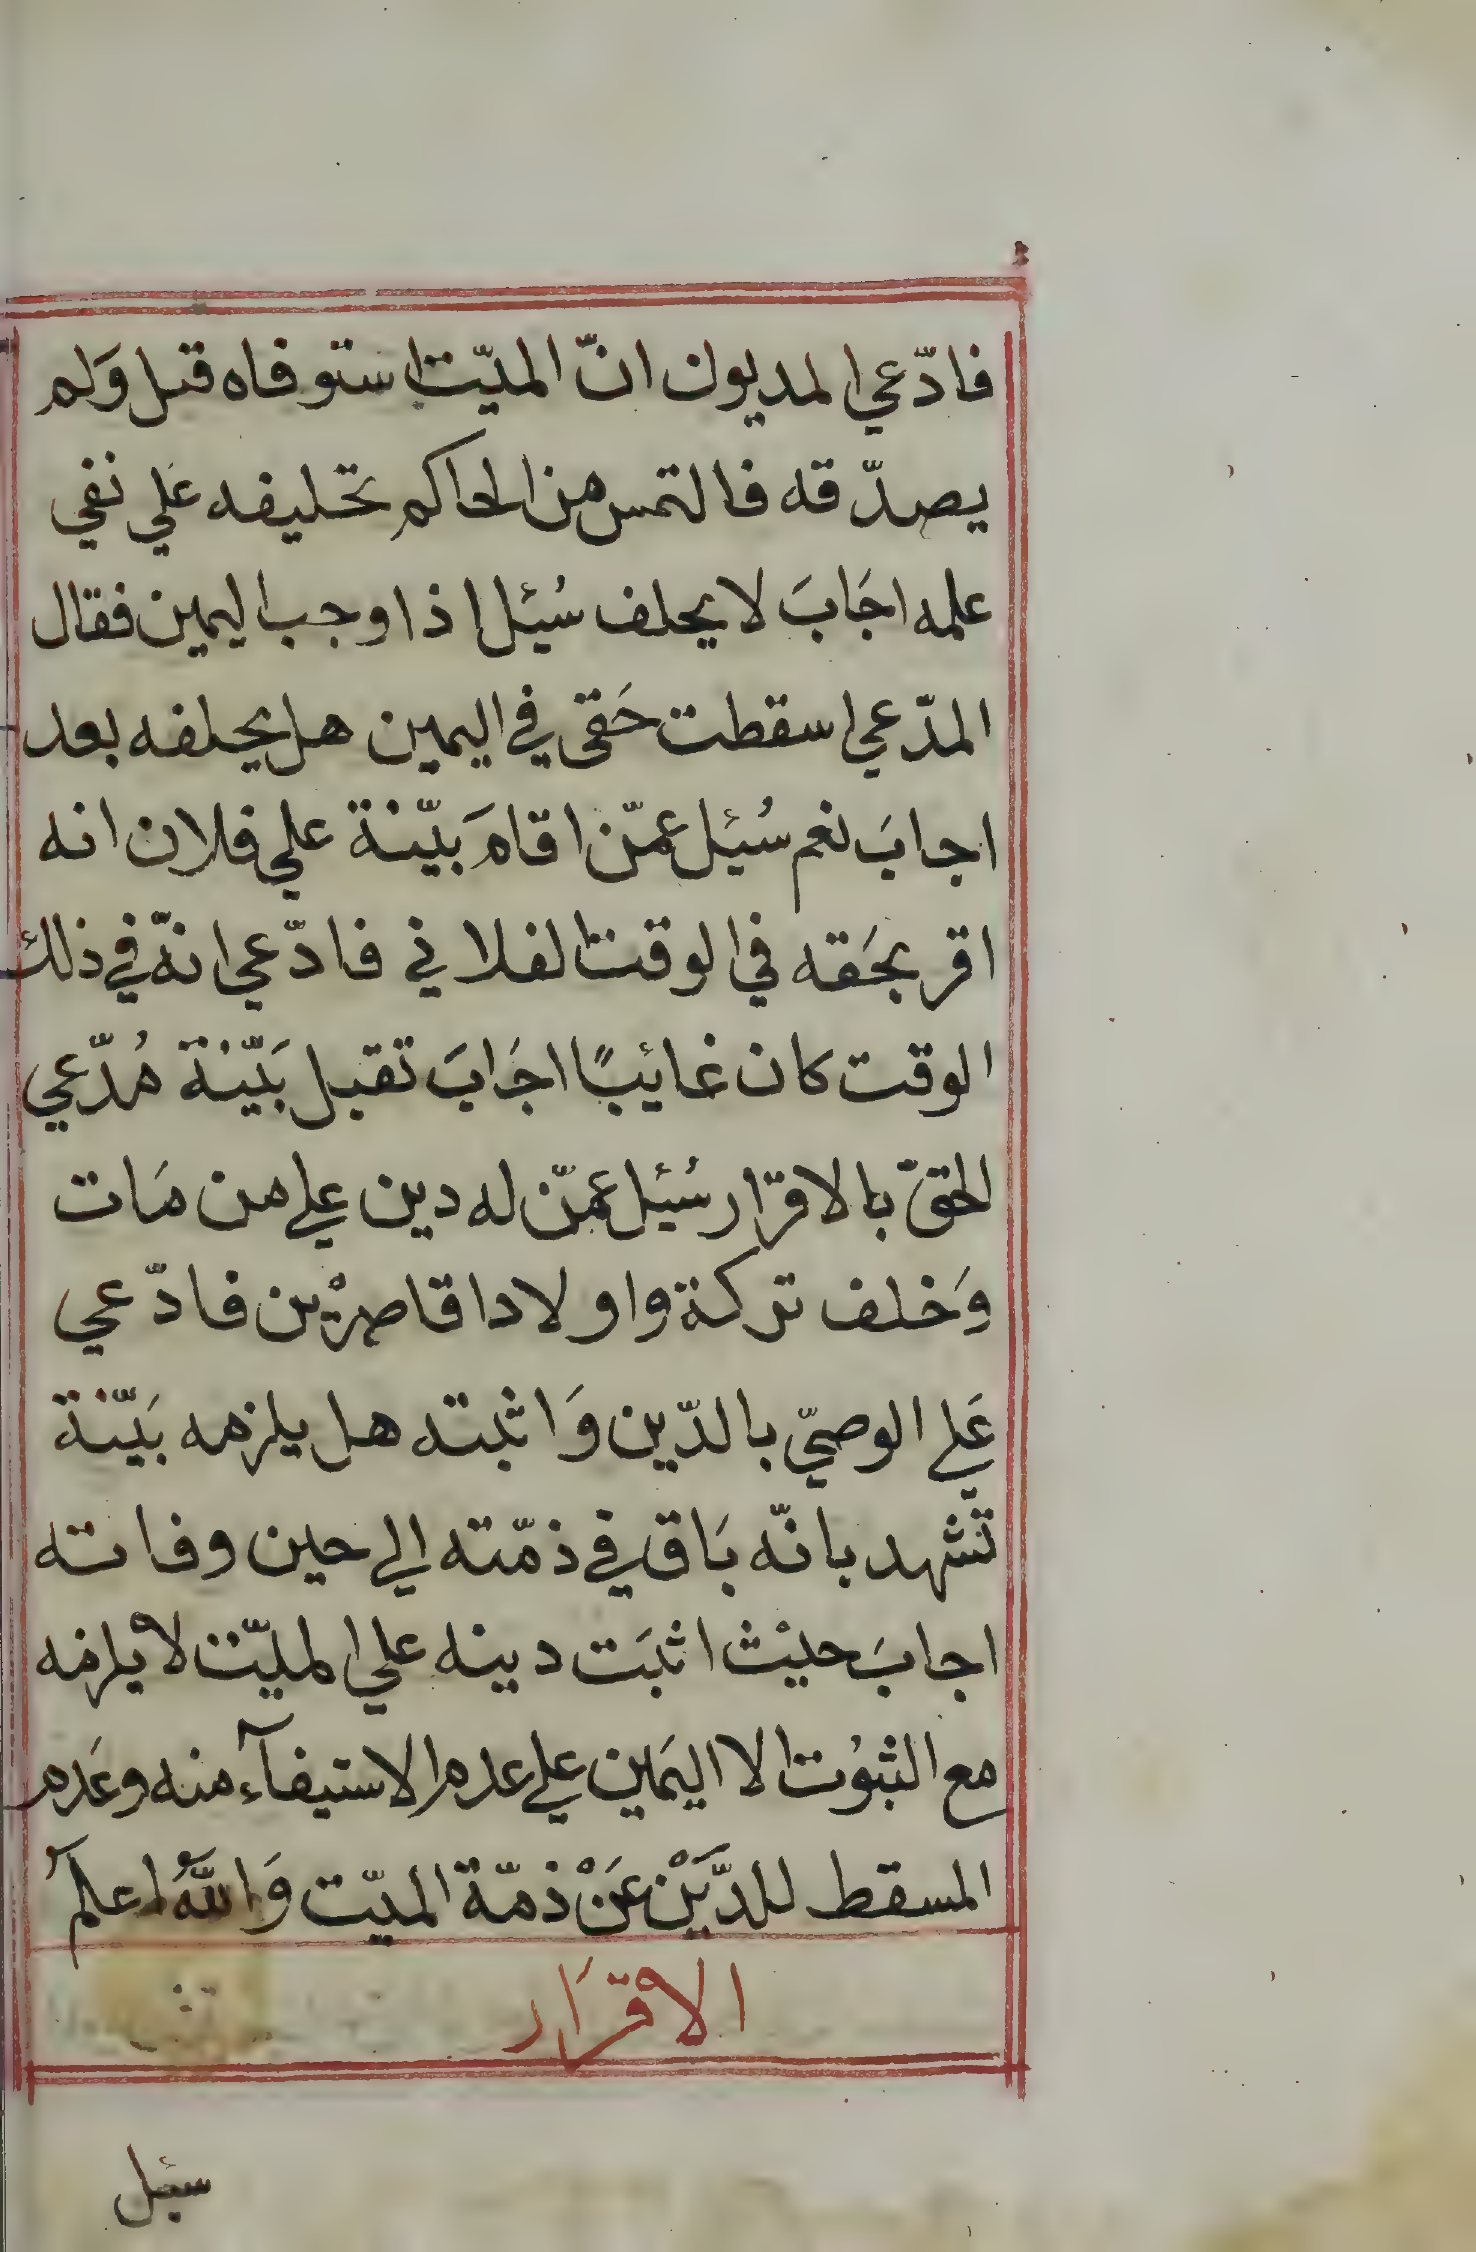 فادّعي المديون انّ الميّت استوفاه قبل وَلم
يصدّقه فالتمس من الحاكم تحليفه عَلي نفي
علمه اجَابَ لا يحلف سُئل اذا وجب اليمين فقال
المدّعي اسقطت حَقى في اليمين هل يحلفه بعد
اجابَ نعم سُئل عمّن اقامَ بيّنة علي فلان انه
اقر بحَقه في الوقت الفلاني فادّعي انّه في ذلك
الوقت كان غائبًا اجَابَ تقبل بَيّنة مُدّعي
الحقّ بالاقرَار سُئل عمّن له دين علي من مَات
وَخلف تركة واولادا قاصرْين فادّعي
عَلي الوصيّ بالدّين وَاثبته هل يلزمه بَيّنة
تشهد بانّه بَاق في ذمّته الي حين وفاته
اجابَ حيْث اثبَت دينه علي الميّت لا يلزمه
مع الثبوُت الا اليَمين علي عدم الاستيفآء منه وعَدم
المسقط للدَّيْن عَنْ ذمّة الميّت وَاللّهُ اعلمُ
الاقرَار
سئل